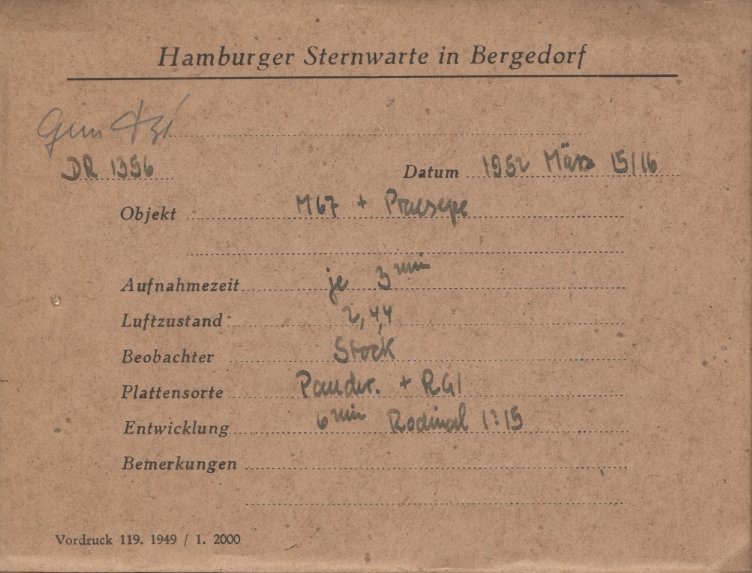 Hamburger Sternwarte in Bergedorf
DR 1356
Datum 1952 März 15/16
Objekt M67 + Praesepe
Aufnahmezeit je 3 min
Luftzustand 2, 4,4
Beobachter Stock
Plattensorte Panchr. + RG1
Entwicklung 6 min Rodinal 1:15
Bemerkungen
Vordruck 119. 1949 / 1. 2000